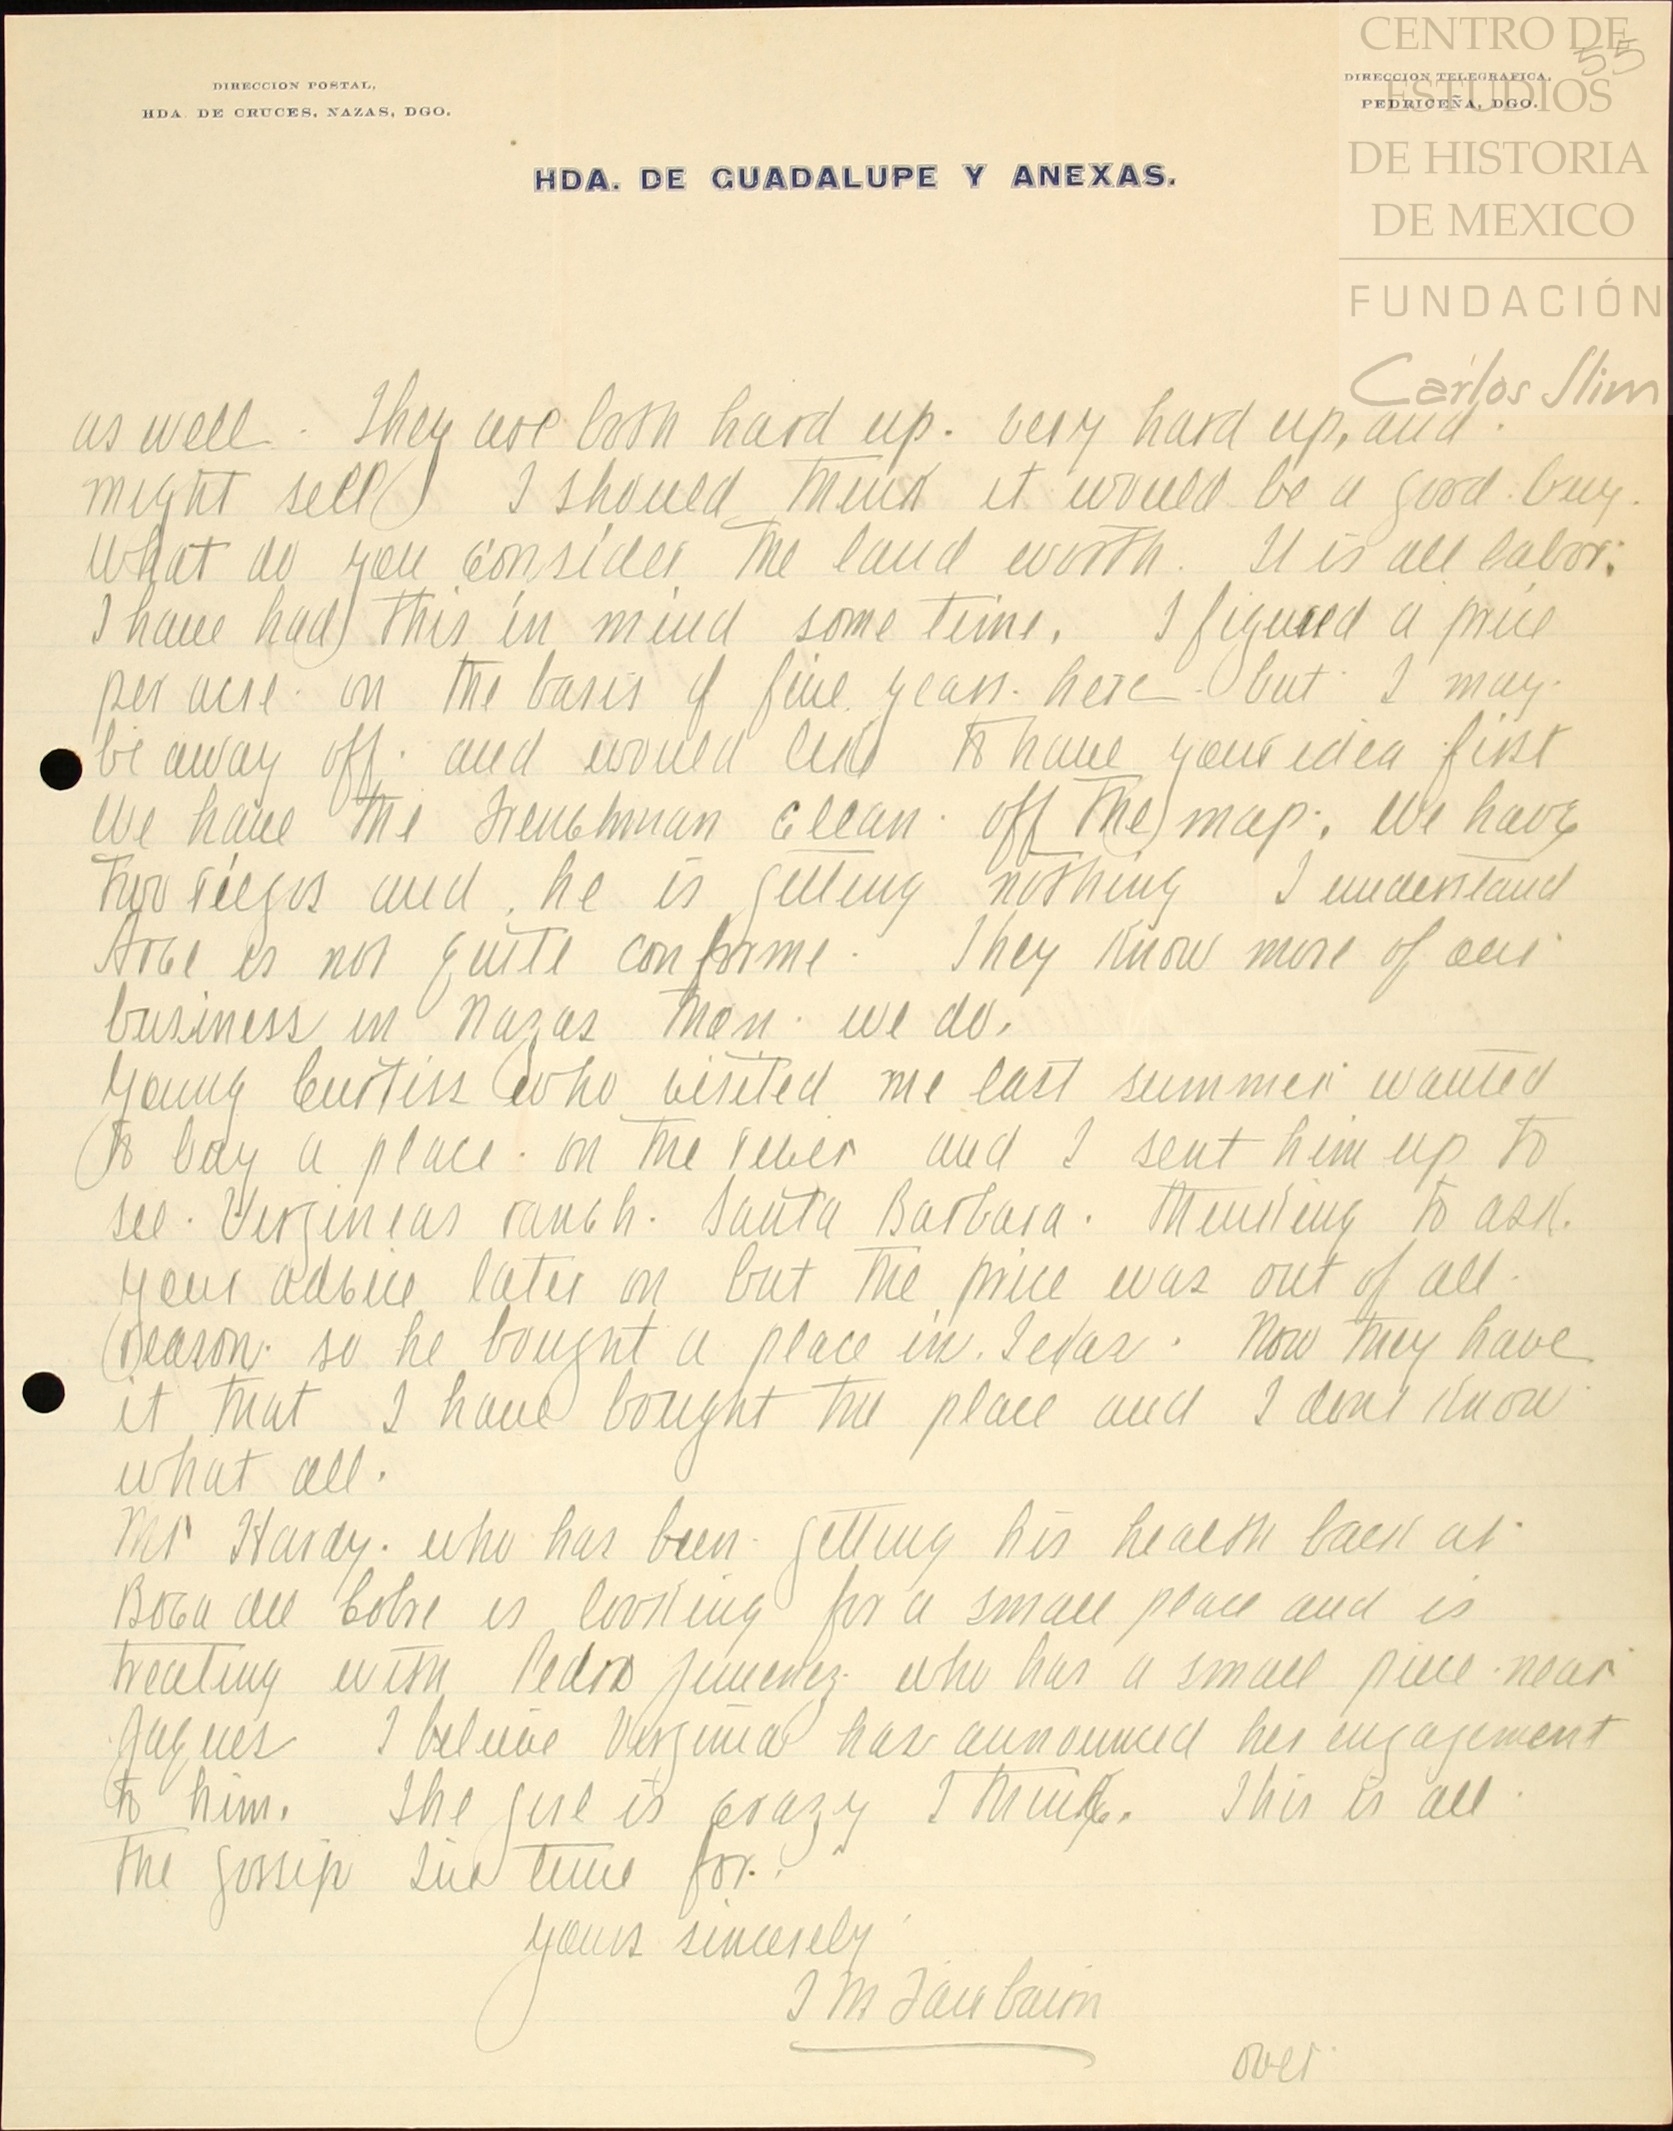 CENTRO DE
ESTUDIOS
DE HISTORIA
DE MEXICO
FUNDACIÓN
Carlos Slim
55
DIRECCION POSTAL,
HDA. DE CRUCES, NAZAS, DGO.
DIRECCION TELEGRAFICA,
PEDRICEÑA, DGO.
HDA. DE GUADALUPE Y ANEXAS.
as well. They are both hard up. very hard up, and
might sell I should think it would be a good buy.
What do you consider the land worth. It is all labor.
I have had this in mind some time. I figured a price
per acre on the basis of five years here but I may
be away off. and would like to have your idea first
We have the Frenchman clean off the map. We have
two riegos and he is getting nothing I understand
Arce is not quite conforme. They know more of our
business in Nazas than we do.
Young Curtiss who visited me last summer wanted
to buy a place on the river and I sent him up to
see Virginias ranch. Santa Barbara. Thinking to ask
your advice later on but the price was out of all
reason so he bought a place in Texas. Now they have
it that I have bought the place and I dont know
what all.
Mr Hardy who has been getting his health back at
Boca del Cobre is looking for a small place and is
treating with Pedro Jimenez who has a small piece near
Jaques I believe Virginia has announced her engagement
to him. The girl is crazy I think. This is all
the gossip Ive time for.
Yours sincerely
J M Fairbairn
over